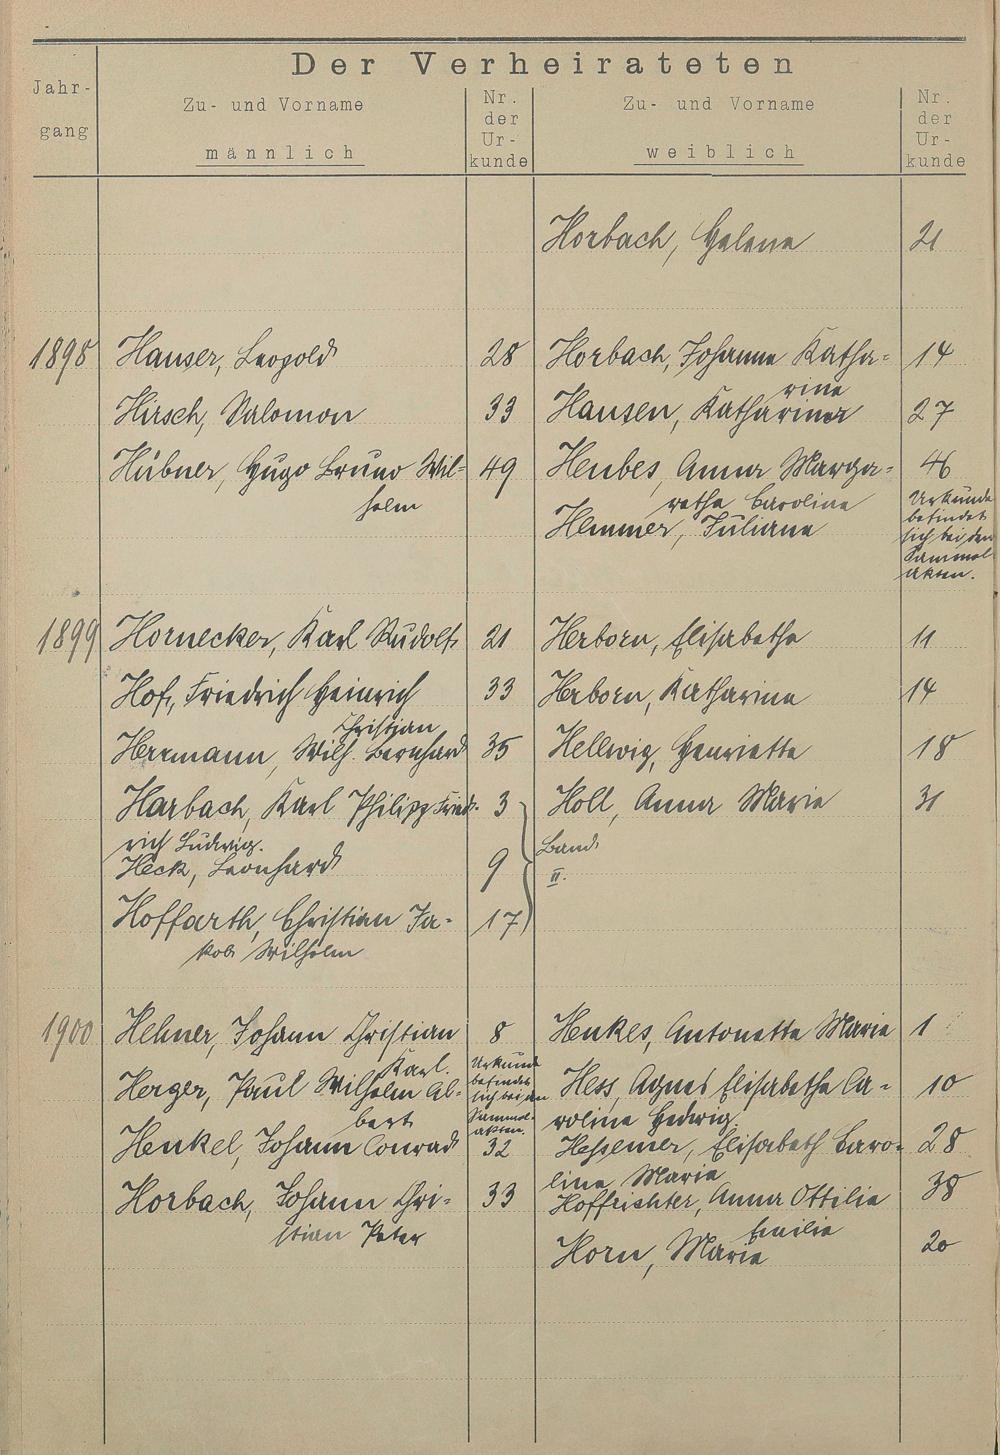 Der Verheirateten
Jahr-
gang
Zu- und Vorname
männlich
Nr.
der
Ur-
kunde
Zu- und Vorname
weiblich
Nr.
der
Ur-
kunde
Horbach, Helene 21
1898 Hauser, Leopold 28 Horbach, Johanna Katha=14
rina
Hirsch, Salomon 33 Hansen, Katharina 27
Hübner, Hugo Bruno Wil= 49 Heubes, Anna Marga= 46
helm
retha Caroline
Hemmer, Juliana
Urkunde
befindet
sich bei den
Sammel
akten.
1899 Hornecker, Karl Rudolf 21 Herborn, Elisabetha 11
Hof, Friedrich Heinrich 33 Herborn, Katharina 14
Christian
Herrmann, Wilh. Bernhard 35 Hellwig, Henriette 18
Harbach, Karl Philipp Fried- 3 Holl, Anna Maria 31
rich Ludwig.
Heck, Leonhard 9
Band
II.
Hoffarth, Christian Ja- 17
kob Wilhelm
1900 Hehner, Johann Christian 8 Henkes, Antonetta Maria 1
Karl.
Herger, Paul Wilhelm Al-
bert
Urkunde
befindet
sich bei den
Sammel-
akten.
Hess, Agnes Elisabetha Ca- 10
roline Hedwig.
Henkel, Johann Conrad 32 Hessemer, Elisabeth Caro- 28
line Maria
Horbach, Johann Chri- 33 Hoffrichter, Anna Ottilie 38
stian Peter
Emilie
Horn, Maria 20